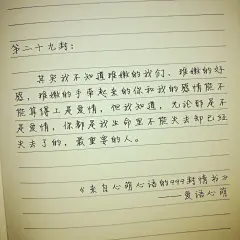 第二十九封：
其实我不知道难缠的我们，难缠的好
感，难缠的手牵起来的你和我的感情能不
能算得上是爱情，但我知道，无论都是不
是爱情，你都是我生命里不能失去却已经
失去了的，最重要的人。
《来自心萌心语的999封情书》
——曼语心萌